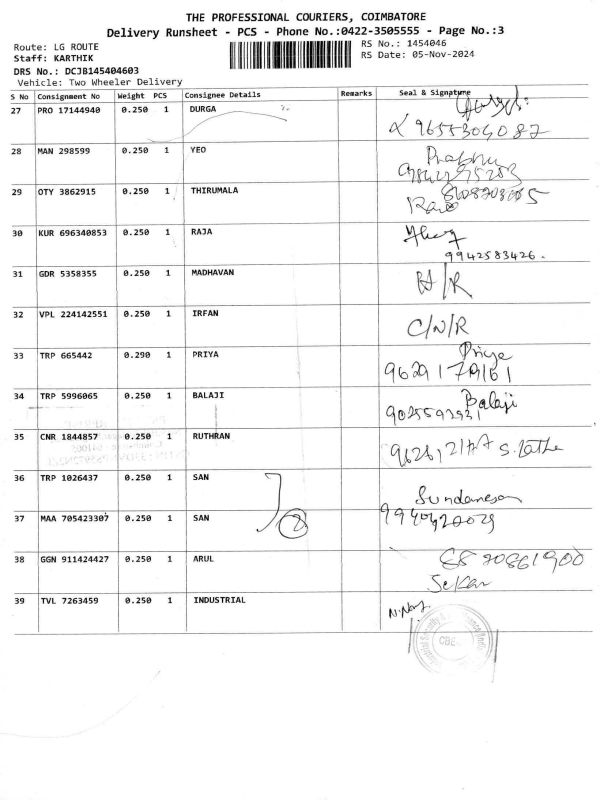 THE PROFESSIONAL COURIERS, COIMBATORE
Delivery Runsheet - PCS - Phone No.:0422-3505555 - Page No.:3
Route: LG ROUTE RS No.: 1454046
Staff: KARTHIK RS Date: 05-Nov-2024
DRS No.: DCJB145404603
Vehicle: Two Wheeler Delivery
S No Consignment No Weight PCS Consignee Details Remarks Seal & Signature
27 PRO 17144940 0.250 1 DURGA
9655304087
28 MAN 298599 0.250 1 YEO Prabhu
29 OTY 3862915 0.250 1 THIRUMALA
30 KUR 696340853 0.250 1 RAJA
9942583426.
31 GDR 5358355 0.250 1 MADHAVAN
32 VPL 224142551 0.250 1 IRFAN C/N/R
33 TRP 665442 0.290 1 PRIYA Priya
9629179161
34 TRP 5996065 0.250 1 BALAJI Balaji
35 CNR 1844857 0.250 1 RUTHRAN
36 TRP 1026437 0.250 1 SAN
37 MAA 705423307 0.250 1 SAN 2
38 GGN 911424427 0.250 1 ARUL
Sekar
39 TVL 7263459 0.250 1 INDUSTRIAL